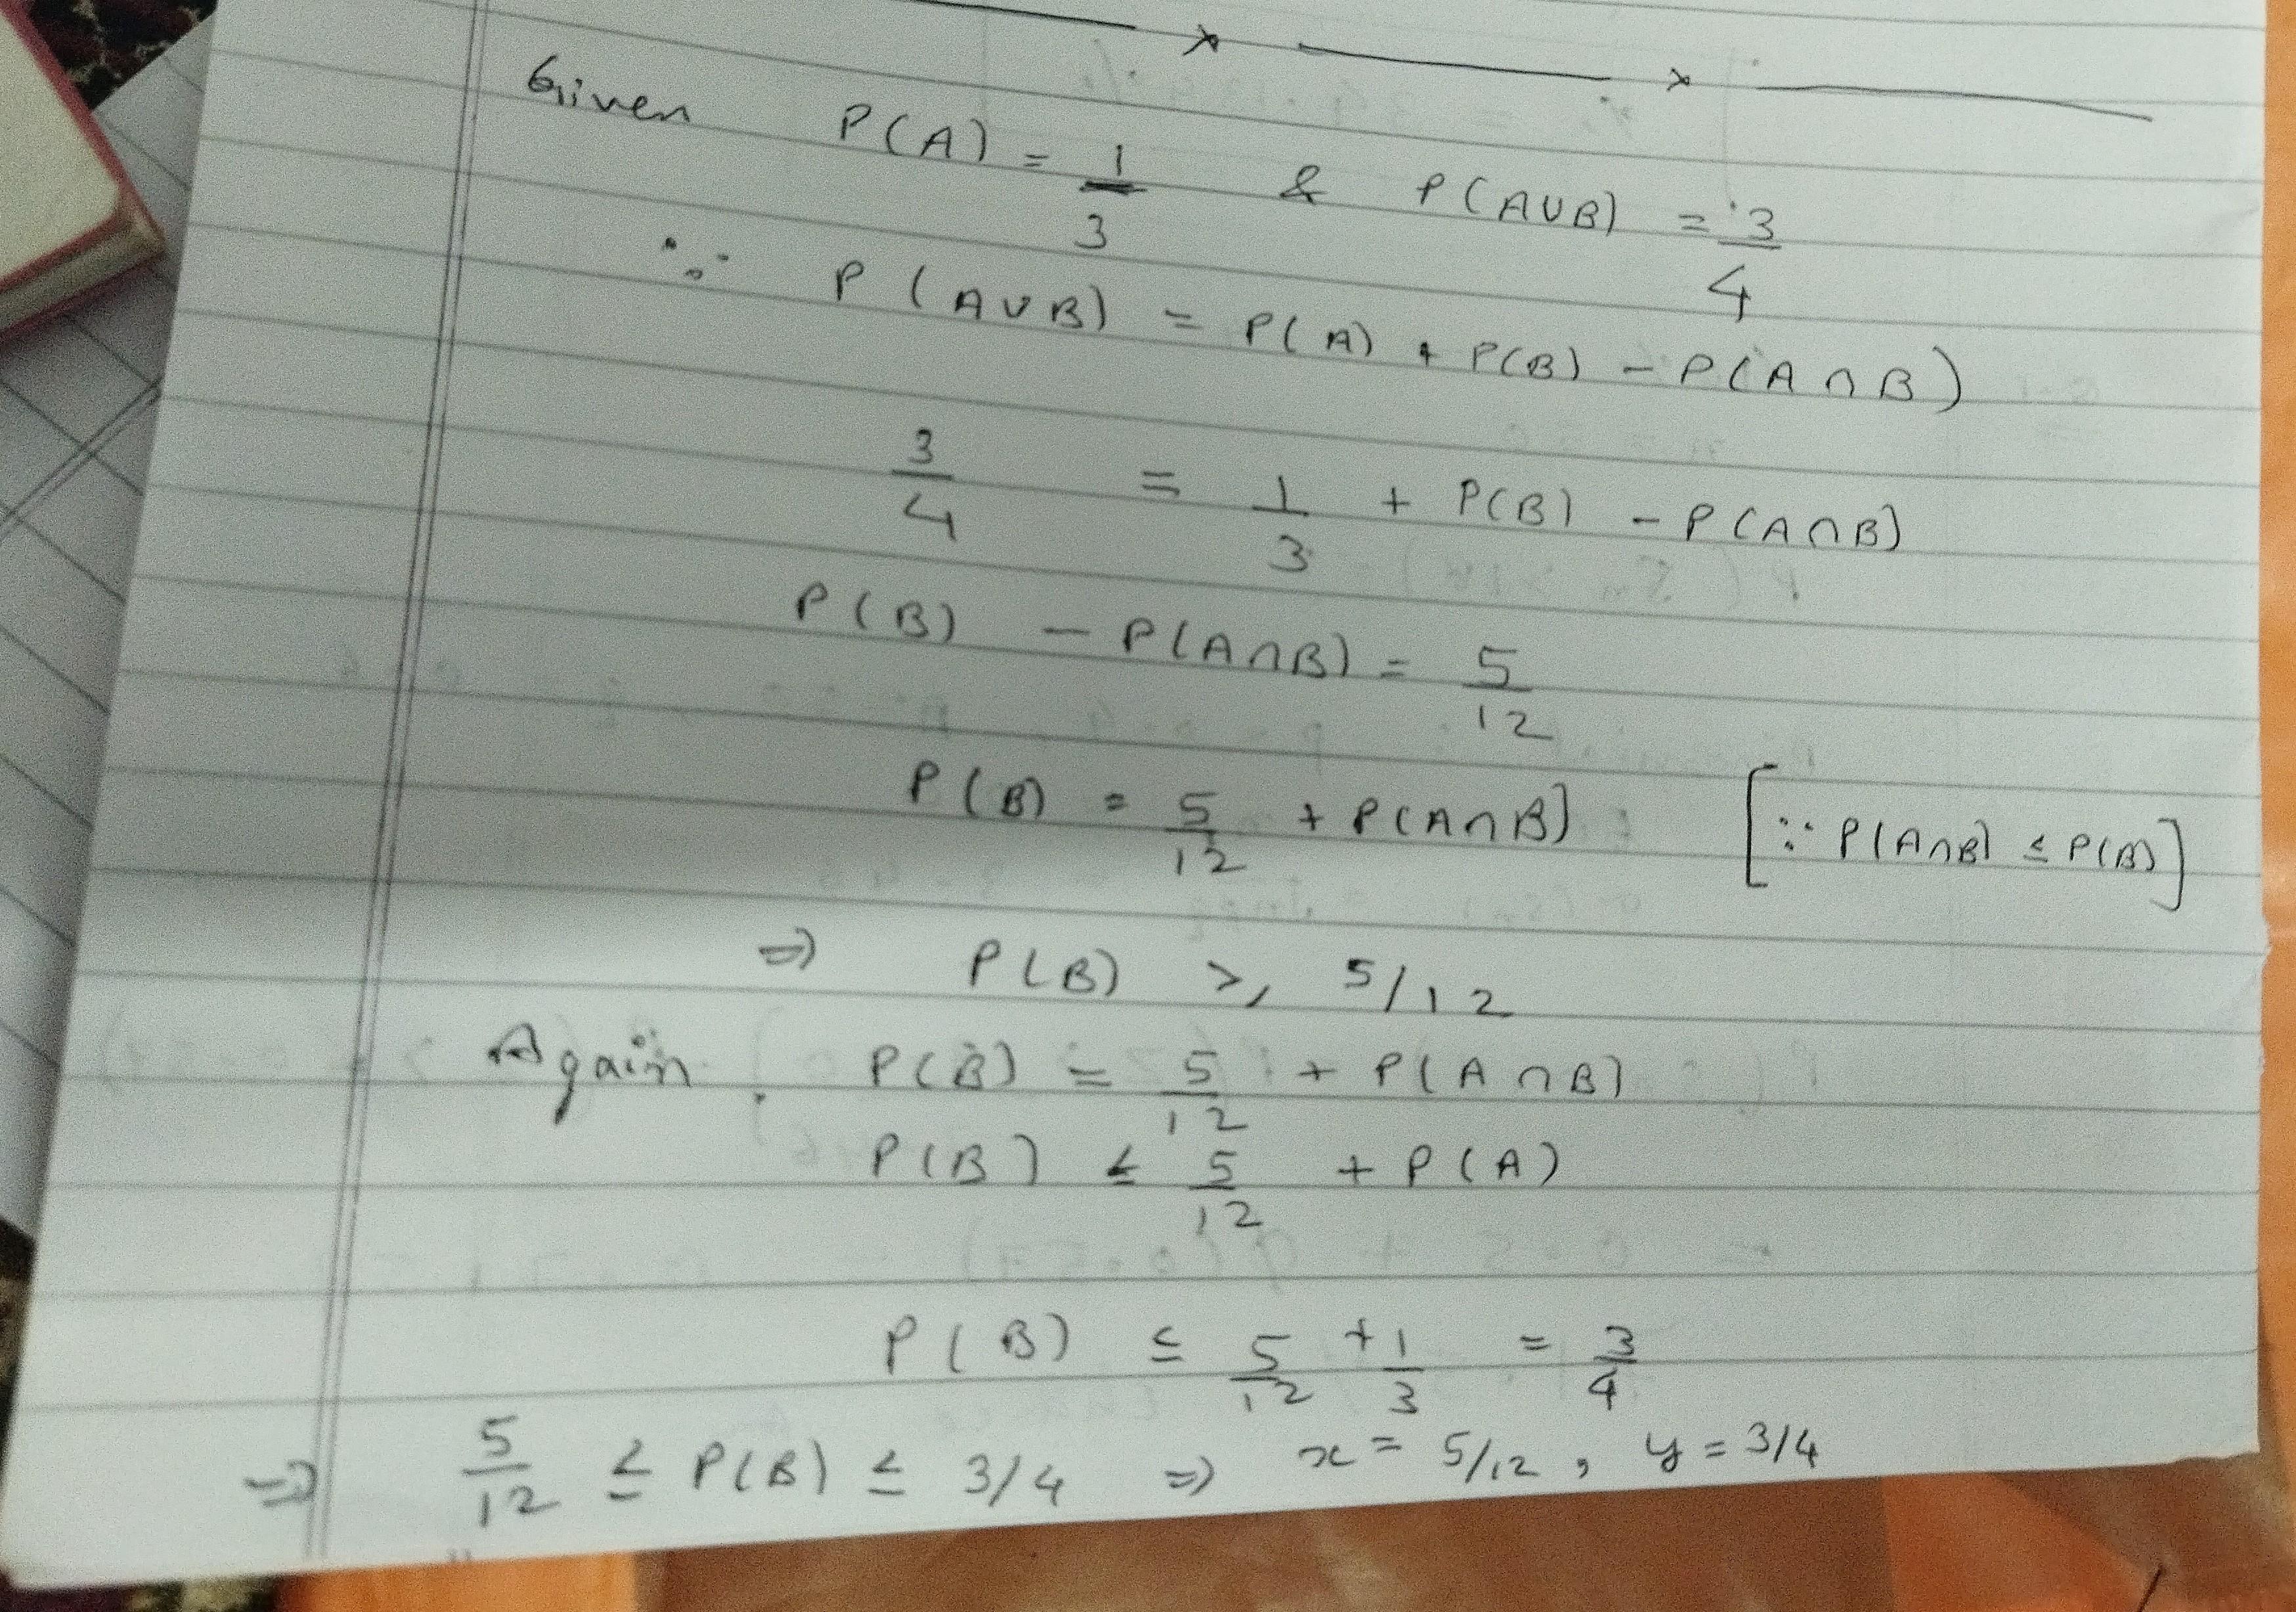 Given P(A) = 1/3 & P(A∪B) = 3/4
∵ P(A∪B) = P(A) + P(B) - P(A∩B)
3/4 = 1/3 + P(B) - P(A∩B)
P(B) - P(A∩B) = 5/12
P(B) = 5/12 + P(A∩B) [∵ P(A∩B) ≤ P(B)]
⇒ P(B) ≥ 5/12
Again. P(B) = 5/12 + P(A∩B)
P(B) ≤ 5/12 + P(A)
P(B) ≤ 5/12 + 1/3 = 3/4
⇒ 5/12 ≤ P(B) ≤ 3/4 ⇒ x = 5/12, y = 3/4